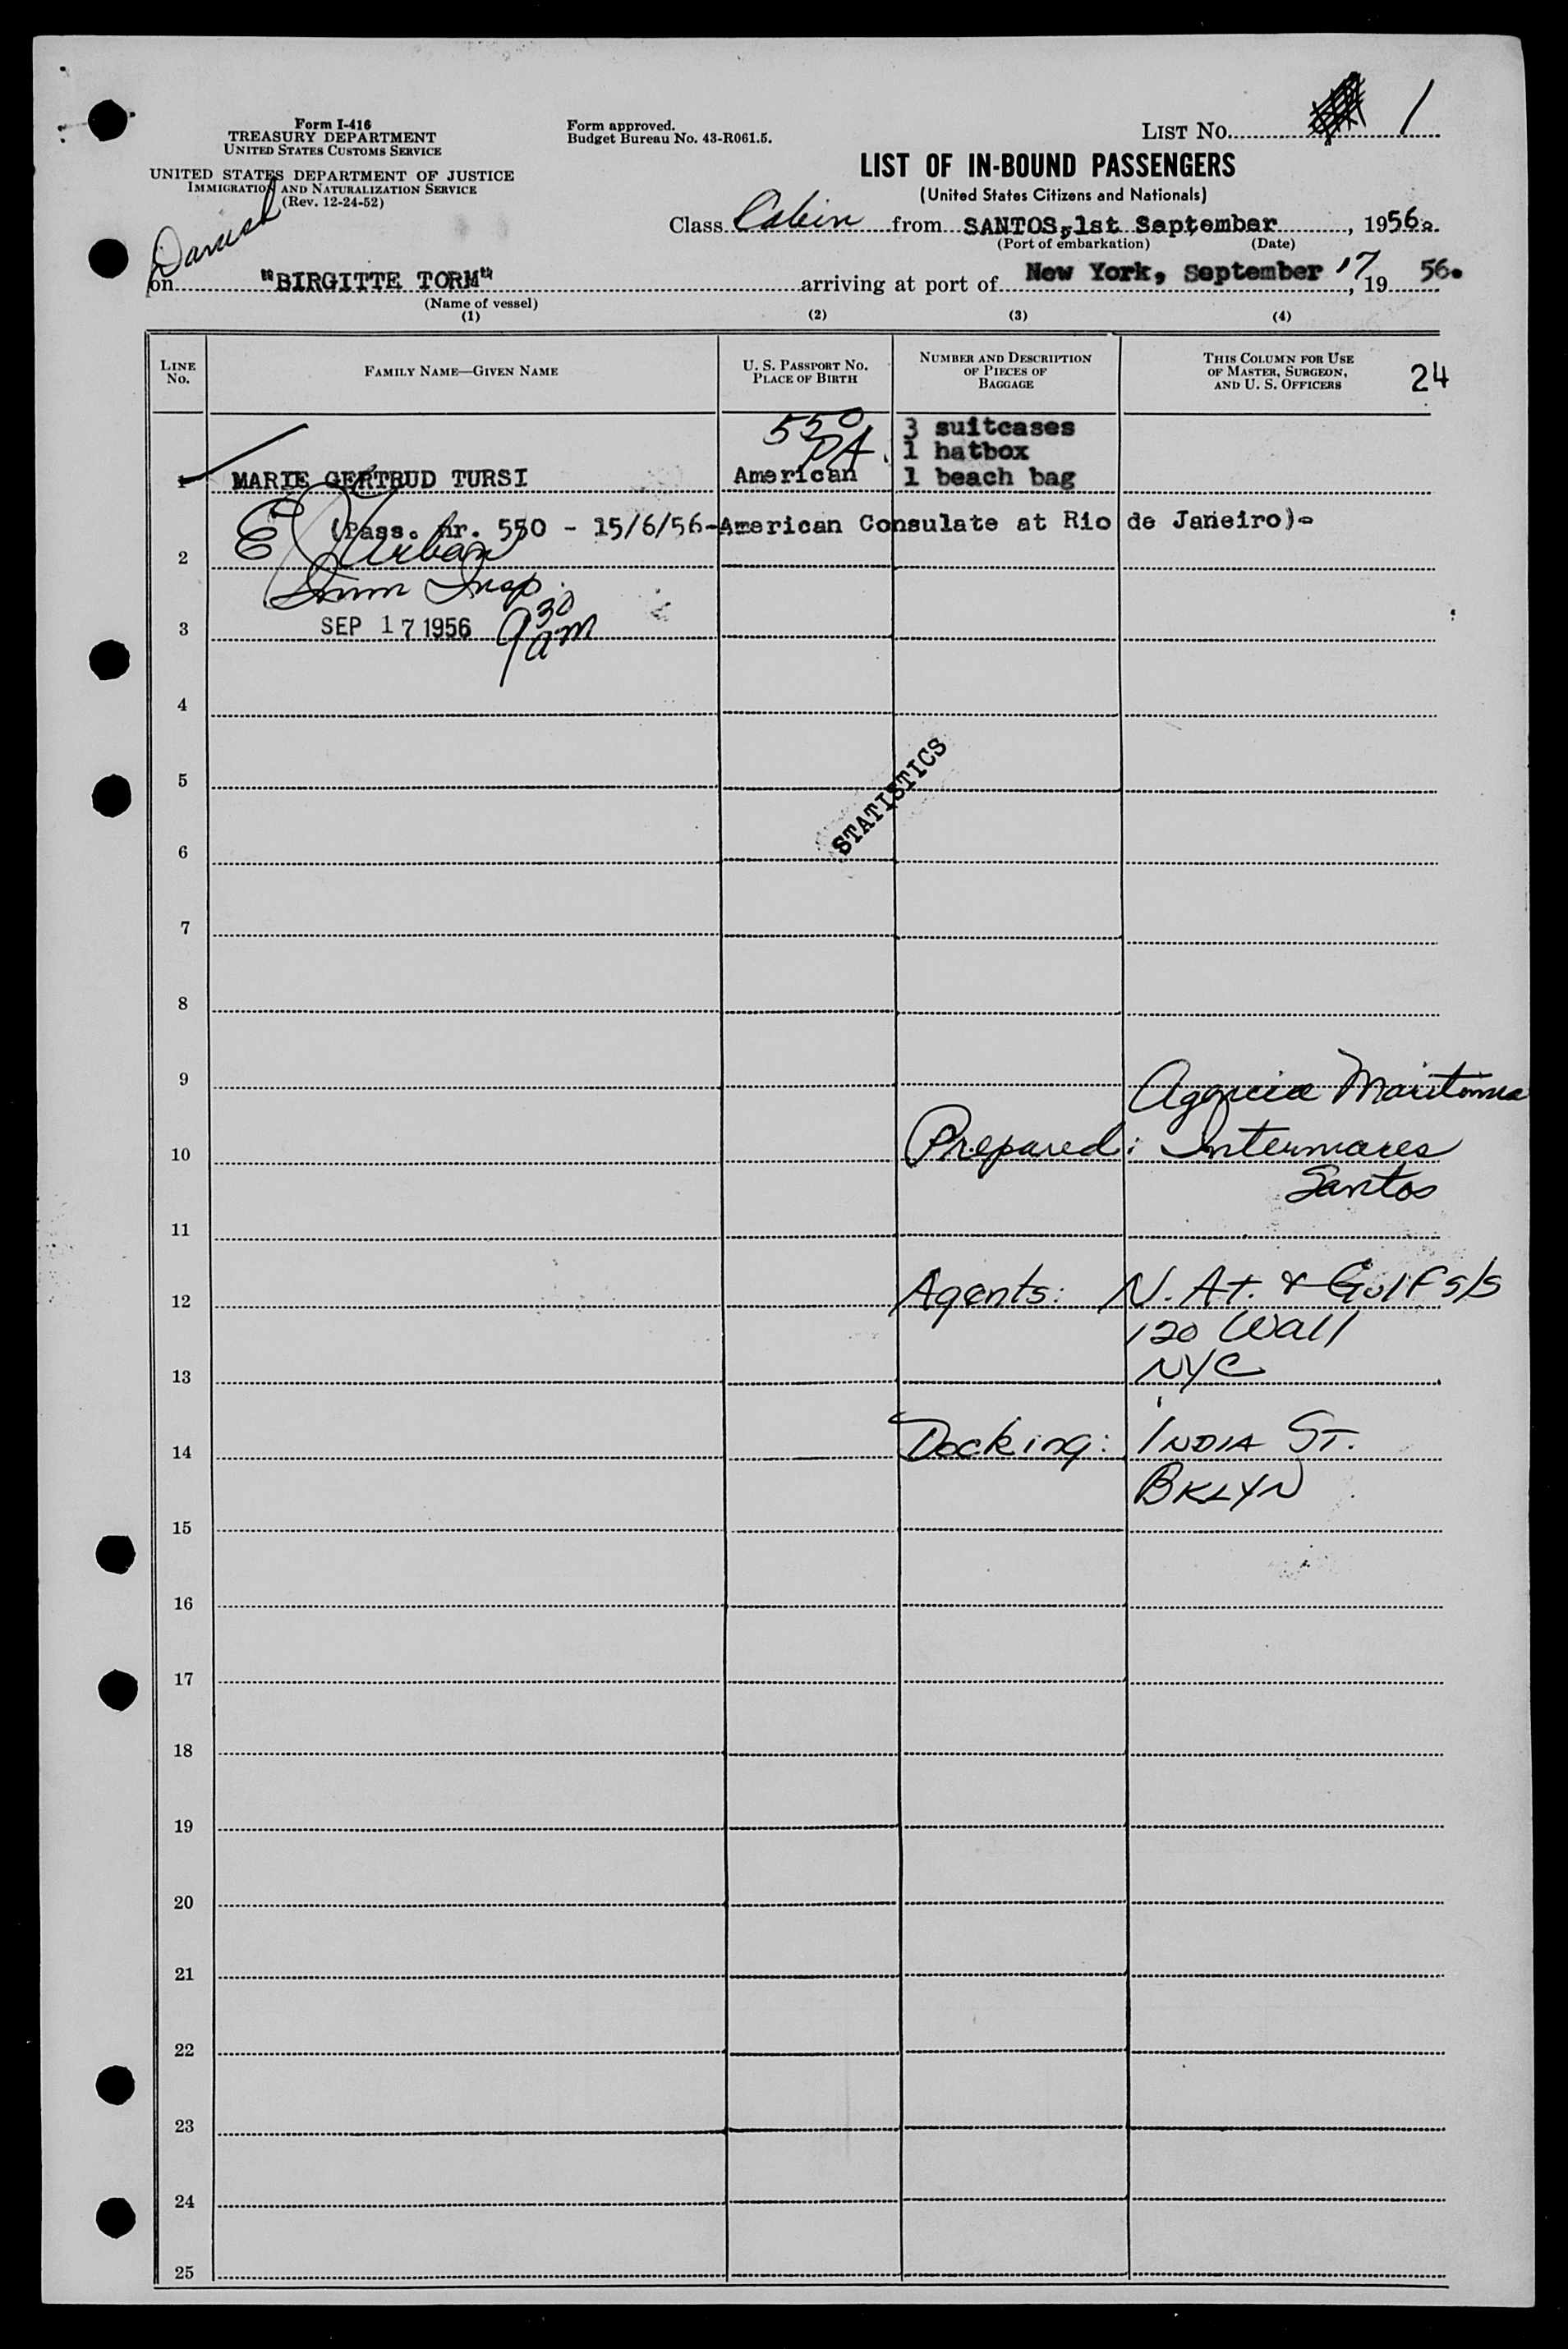 Form I-416
TREASURY DEPARTMENT
UNITED STATES CUSTOMS SERVICE
UNITED STATES DEPARTMENT OF JUSTICE
IMMIGRATION AND NATURALIZATION SERVICE
(Rev. 12-24-52)
Form approved.
Budget Bureau No. 43-R061.5.
LIST NO. 1
LIST OF IN-BOUND PASSENGERS
(United States Citizens and Nationals)
Class Cabin from SANTOS, 1st September, 1956.
(Port of embarkation) (Date)
Danish
on "BIRGITTE TORM" arriving at port of New York, September 17, 19 56.
(Name of vessel)
(1) (2) (3) (4)
LINE NO.
FAMILY NAME—GIVEN NAME
U. S. PASSPORT NO.
PLACE OF BIRTH
NUMBER AND DESCRIPTION
OF PIECES OF
BAGGAGE
THIS COLUMN FOR USE
OF MASTER, SURGEON,
AND U. S. OFFICERS
24
550
PA
3 suitcases
1 hatbox
1 MARIE GERTRUD TURSI American 1 beach bag
(Pass. nr. 550 - 15/6/56-American Consulate at Rio de Janeiro)-
E Urban
2
Imm Insp.
3 SEP 17 1956 9 30 am
4
STATISTICS
5
6
7
8
9
Agencia Maritima
10 Prepared: Intermares
Santos
11
12 Agents: N. At. & Gulf s/s
120 Wall
13 NYC
14 Docking: INDIA ST.
BKLYN
15
16
17
18
19
20
21
22
23
24
25